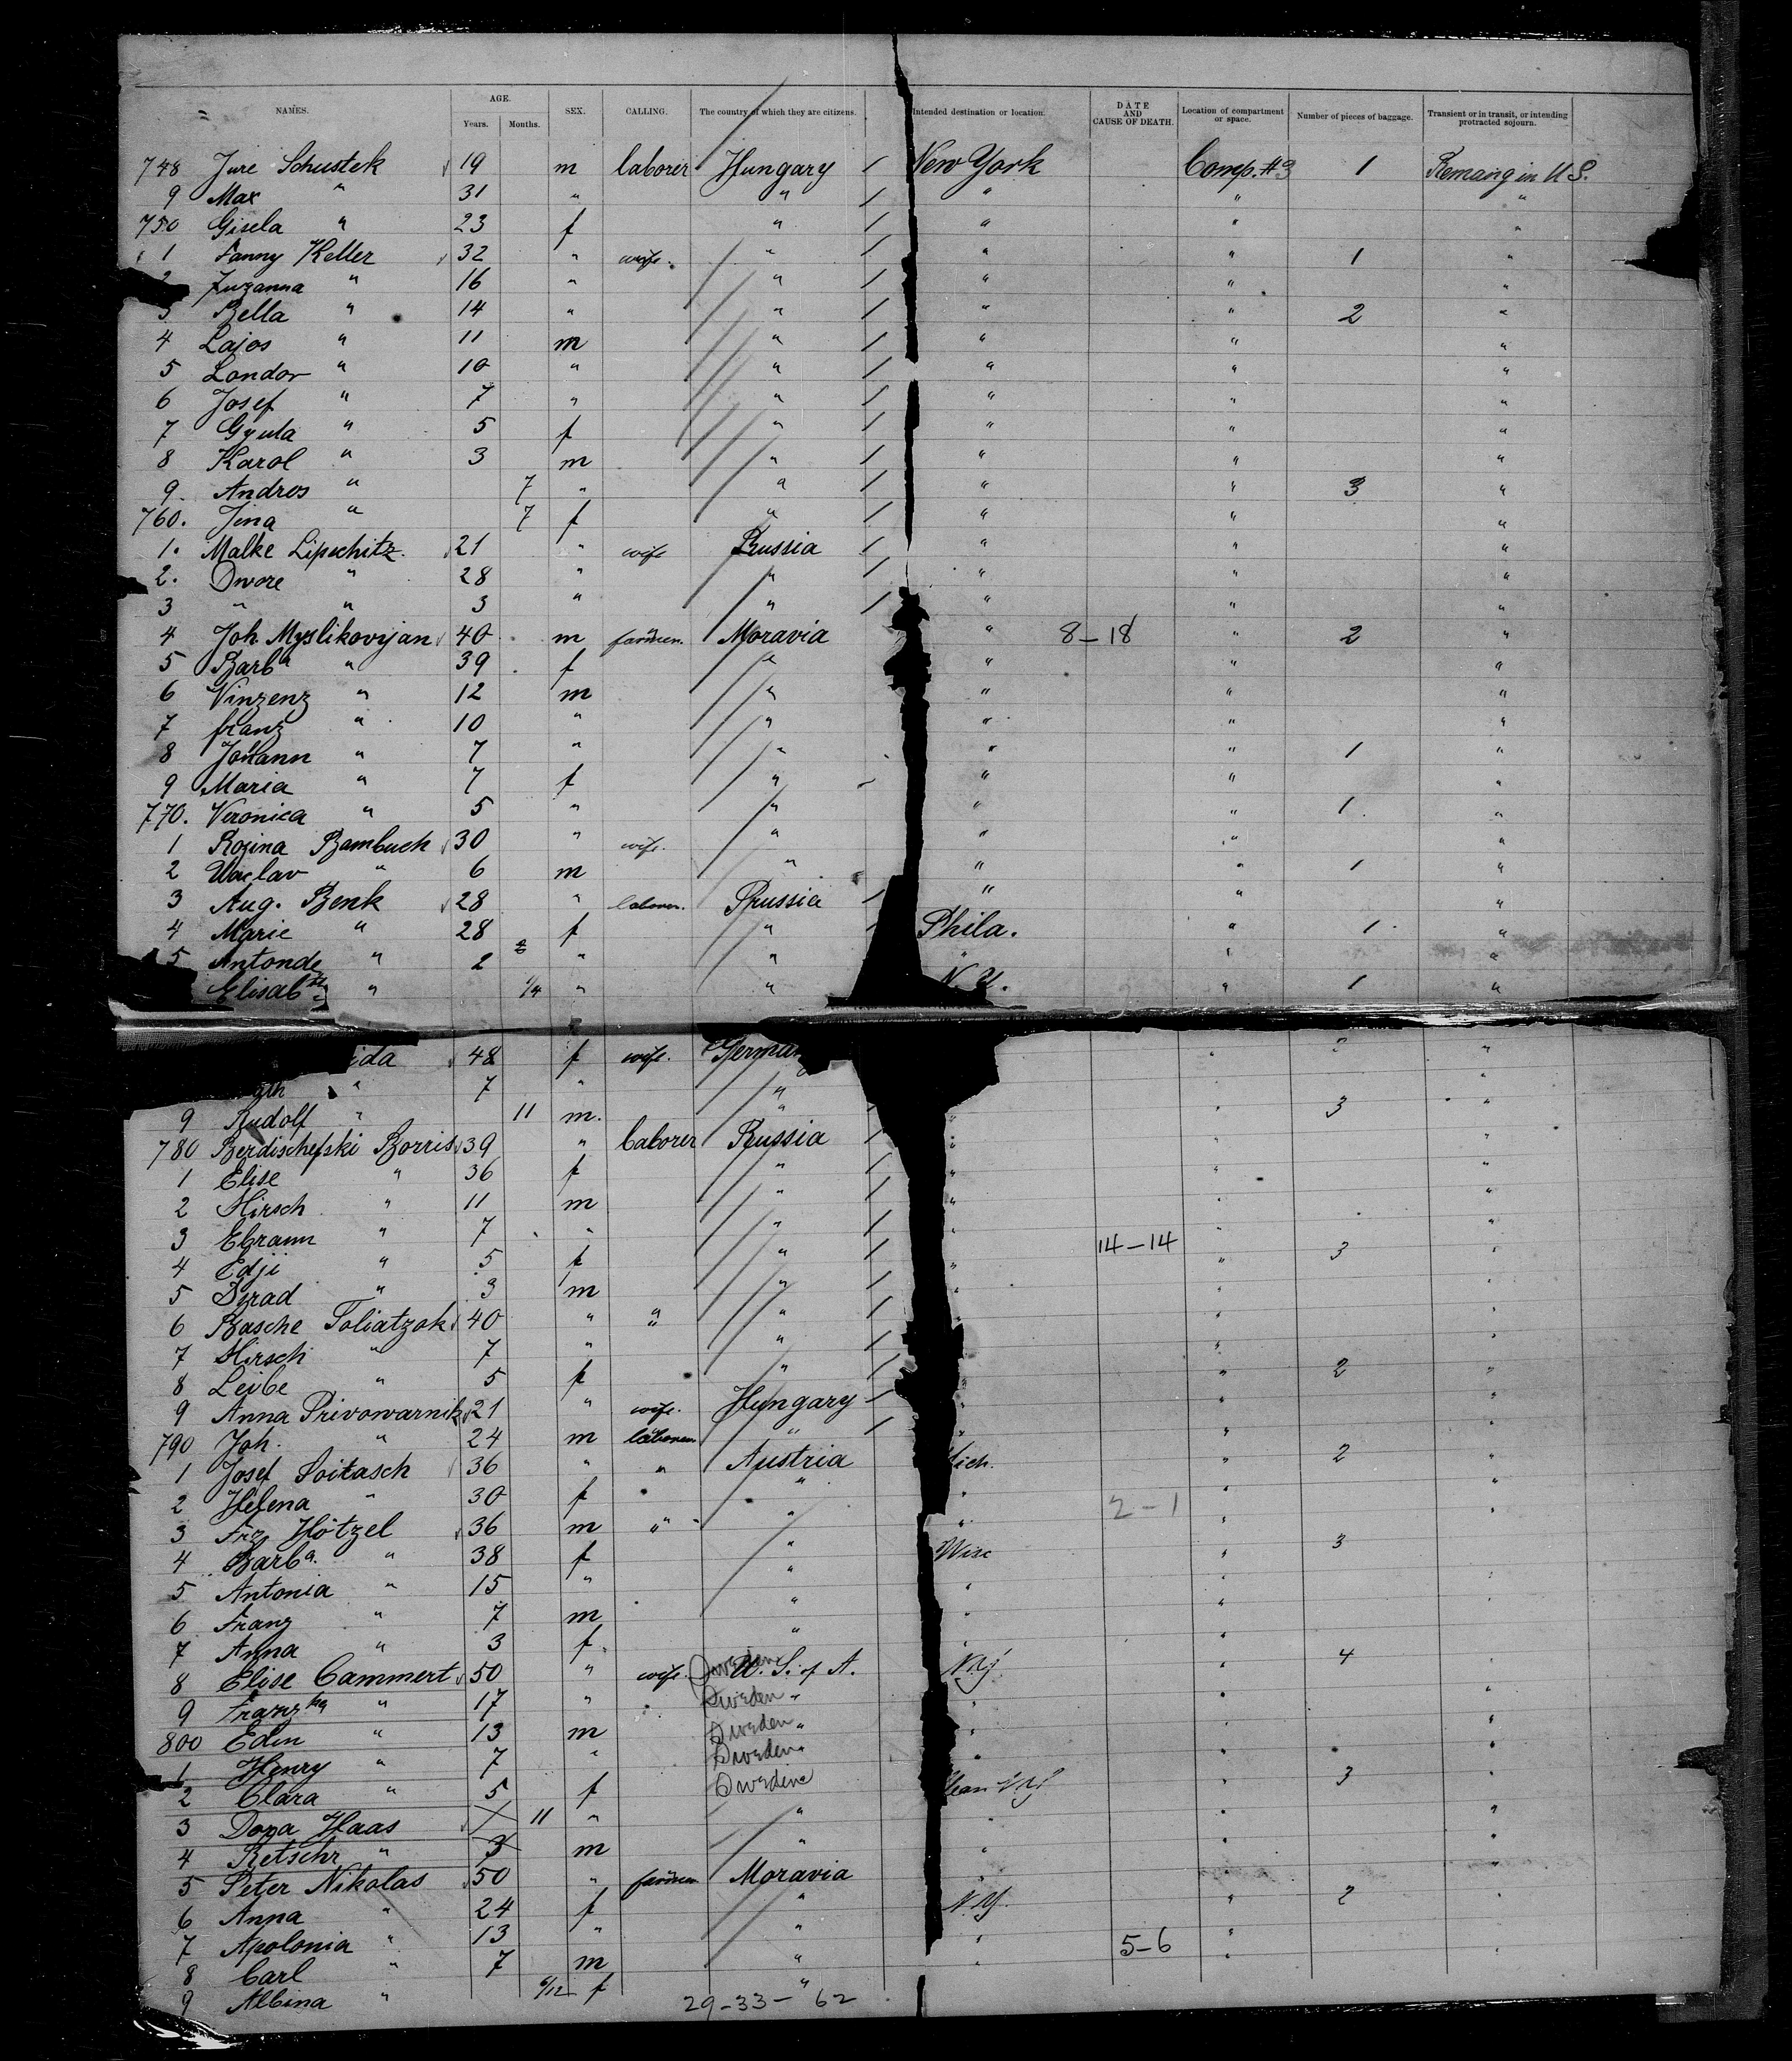 NAMES. AGE. Years. Months. SEX. CALLING. The country of which they are citizens. Intended destination or location. DATE AND CAUSE OF DEATH. Location of compartment or space. Number of pieces of baggage. Transient or in transit, or intending protracted sojourn.
748 Jure Schustek 19 m laborer Hungary / New York Comp. #3 1 Remaing in U S.
9 Max " 31 " " / " " "
750 Gisela " 23 f " / " " "
1 Fanny Keller 32 " wife. " / " " 1 "
2 Zuzanna " 16 " " / " " "
3 Bella " 14 " " / " " 2 "
4 Lajos " 11 m " / " " "
5 Londor " 10 " " / " " "
6 Josef " 7 " " / " " "
7 Gyula " 5 f " / " " "
8 Karol " 3 m " / " " "
9. Andros " 7 " " / " " 3 "
760. Jina " 7 f " / " " "
1. Malke Lipschitz. 21 " wife Russia / " " "
2. Dwore " 28 " " / " " "
3 " " 3 " " / " " "
4 Joh Myslikovjan 40 m Moravia " 8-18 " 2 "
5 Barba " 39 f " " " "
6 Vinzenz " 12 m " " " "
7 franz " 10 " " " " "
8 Johann " 7 " " " " 1 "
9 Maria " 7 f " " " "
770. Veronica " 5 " " " " 1. "
1 Rozina Bambuch 30 " wife. " " " "
2 Waclav " 6 m " " " 1 "
3 Aug. Benk 28 " laborer. Prussia / " " "
4 Marie " 28 f " Phila. " 1. "
5 Antonde " 2 " " " " "
Elisabth " 1/4 " " N. Y. " 1 "
ida 48 f wife. German " 2 "
" 7 " " "
9 Rudolf " 11 m. " " " 3 "
780 Berdischefski Borris 39 " laborer Russia / " " "
1 Elise " 36 f " / " " "
2 Hirsch " 11 m " / " " "
3 Ebramm " 7 " " / " 14-14 " "
4 Edji " 5 f " / " " 3 "
5 Dirad " 3 m " / " " "
6 Basche Toliatzok 40 " " " / " "
7 Hirsch " 7 " " / " "
8 Leibe " 5 f " / " " 2 "
9 Anna Privowarnik 21 " wife. Hungary / " " "
790 Joh. " 24 m laborer " / " " "
1 Josef Soitasch 36 " " Austria ich. " 2 "
2 Helena " 30 f " " 2-1 " "
3 Frz Hötzel 36 m " " " " "
4 Barba. " 38 f " Wisc " 3
5 Antonia " 15 " " " "
6 Franz " 7 m " " "
7 Anna " 3 f " " "
8 Elise Cammert 50 " wife. Sweden U. S. of A. N.Y. 4 "
9 Franzka " 17 " Sweden " " " "
800 Edin " 13 m Sweden " " " "
1 Henry " 7 " Sweden " " " "
2 Clara " 5 f Sweden " " 3 "
3 Dora Haas 11 " " " "
4 Retschr " 3 m " " " "
5 Peter Nikolas 50 " Moravia " "
6 Anna " 24 f " N.Y. " 2 "
7 Apolonia " 13 " " " 5-6 "
8 Carl " 7 m " " " "
9 Albina " 6/12 f "
29-33-62